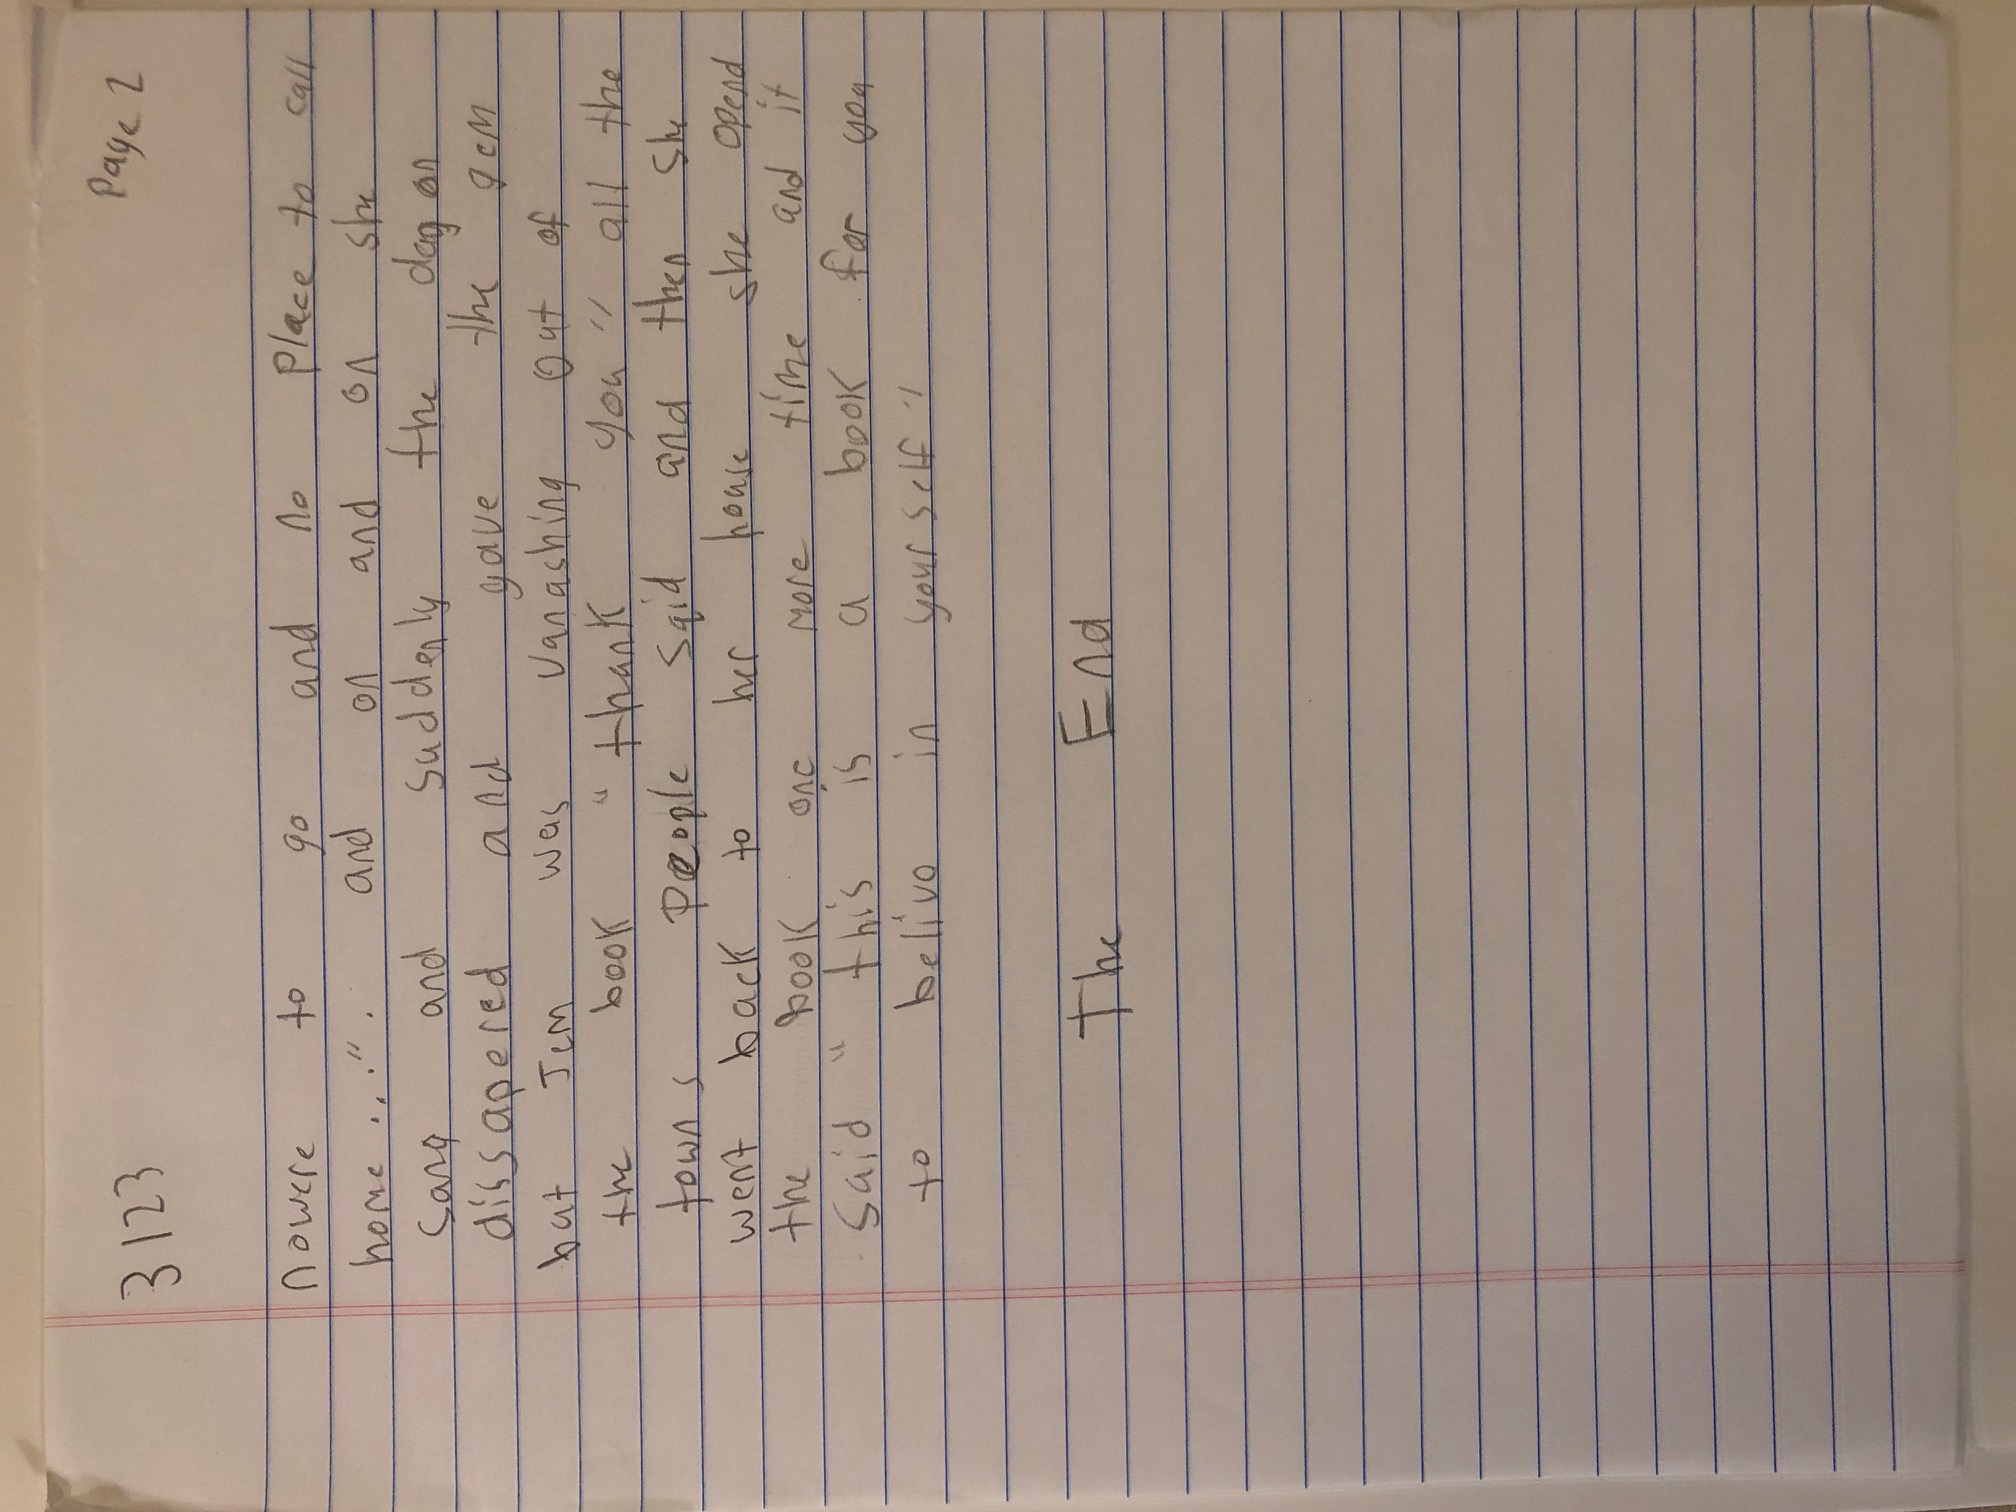 3123
Page 2
nowere to go and no place to call
home ...". and on and on she
sang and suddenly the dagon
dissapered and gave the gem
but Jem was vanashing out of
the book "thank you" all the
towns people said and then she
went back to her house she opend
the book one more time and it
said "this is a book for you
to belive in yourself"
The End